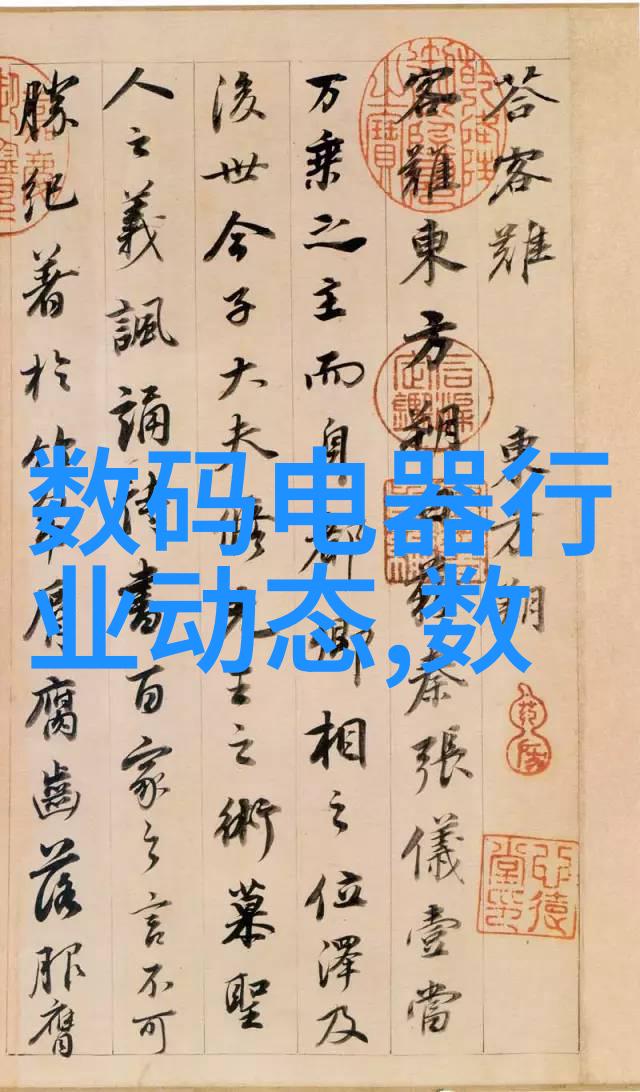 答客難 東方朔
客難東方朔曰蘇秦張儀壹當
万乘之主而身都卿相之位澤及
後世今子大夫脩先王之術慕聖
人之義諷誦詩書百家之言不可
勝紀著於竹帛脣腐齒落服膺
数码电器行
业动态,数